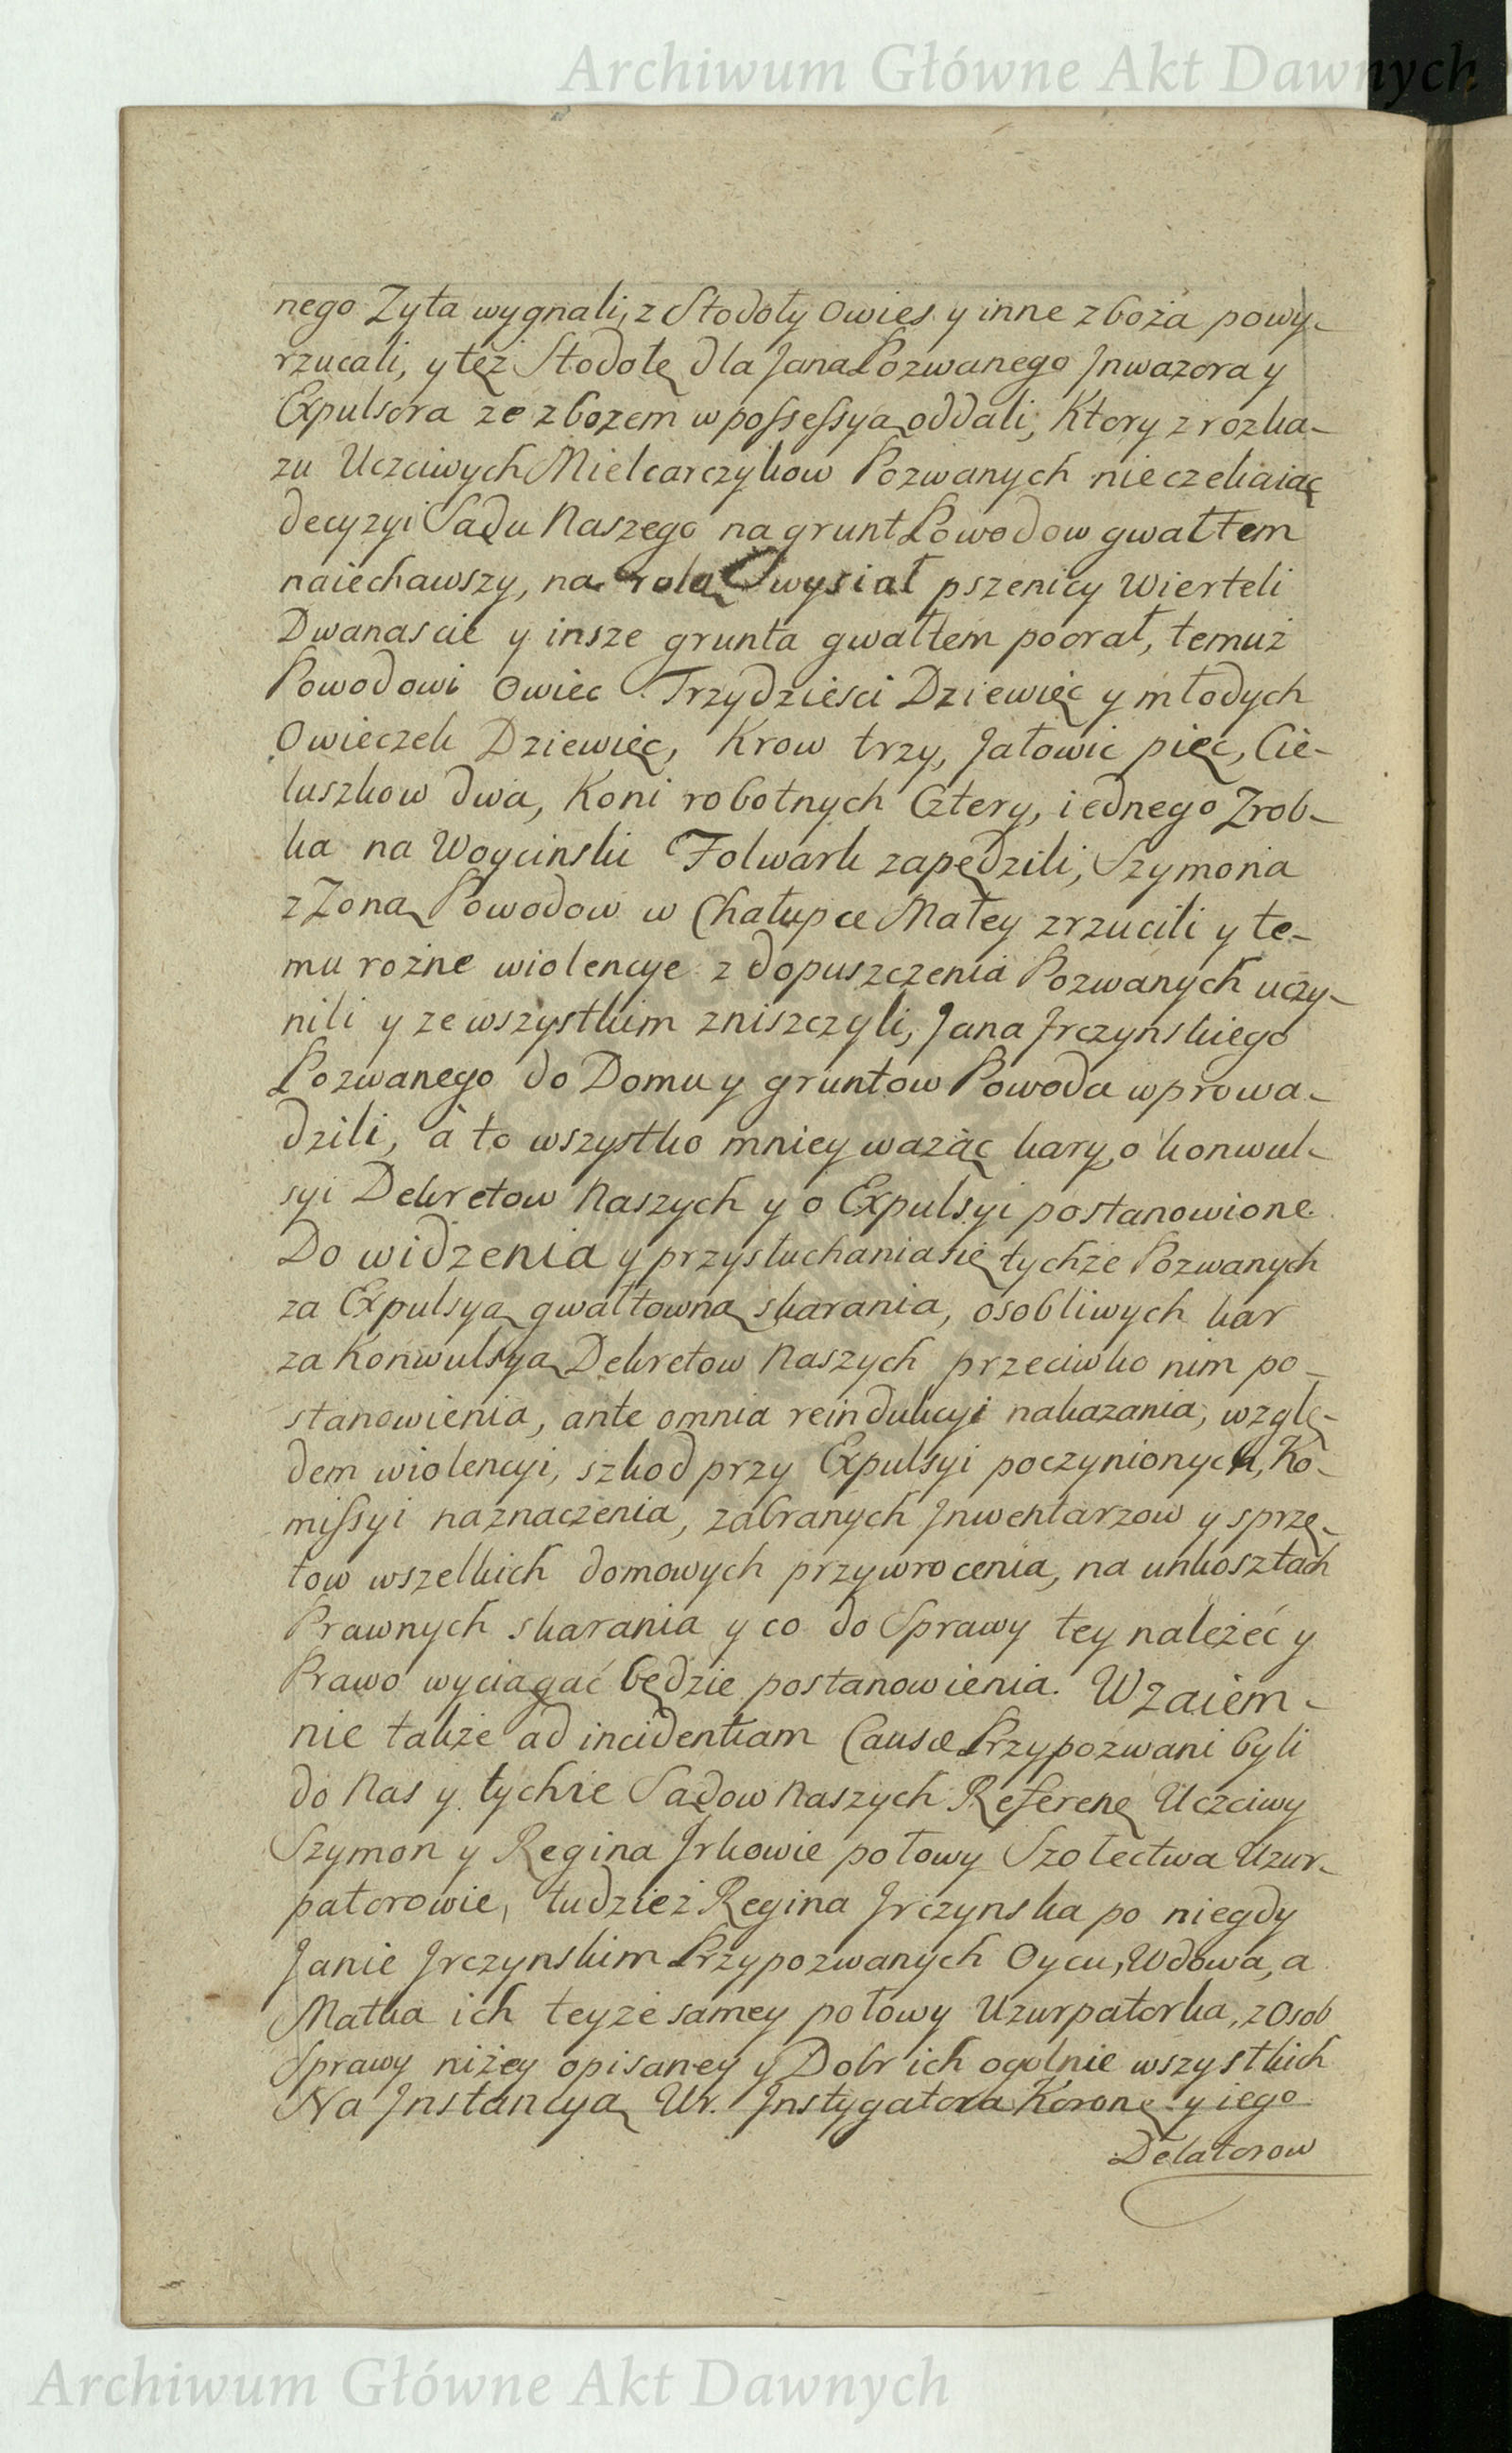 Archiwum Główne Akt Dawnych
nego Zyta wygnali, z Stodoły owies y inne zboża powy-
rzucali, y też Stodołę dla Jana Pozwanego Jnwazora y
Expulsora ze zbozem w possessyą oddali, Ktory z rozka-
zu Uczciwych Mielcarczykow Pozwanych nieczekaiąc
decyzyi Sądu Naszego na grunt Powodow gwałtem
naiechawszy, na rolą wysiał pszenicy Wierteli
Dwanascie y insze grunta gwałtem poorał, temuż
Powodowi Owiec Trzydziesci Dziewięc y młodych
Owieczek Dziewięc, Krow trzy, Jałowic pięc, Cie-
luszkow dwa, Koni robotnych Cztery, iednego Zrob-
ka na Woycinski Folwark zapędzili, Szymona
z Zoną Powodow w Chałupce Małey zrzucili y te-
mu rożne wiolencye z dopuszczenia Pozwanych uczy-
nili y ze wszystkim zniszczyli, Jana Jrczynskiego
Pozwanego do Domu y gruntow Powoda wprowa-
dzili, a to wszystko mniey ważąc kary, o konwul-
syi Dekretow Naszych y o Expulsyi postanowione.
Do widzenia y przysłuchania się tychże Pozwanych
za Expulsyą gwałtowną skarania, osobliwych kar
za Konwulsyą Dekretow Naszych przeciwko nim po-
stanowienia, ante omnia reindukcyi nakazania, wzglę-
dem wiolencyi, szkod przy Expulsyi poczynionych, Ko-
missyi naznaczenia, zabranych Jnwentarzow y sprzę-
tow wszelkich domowych przywrocenia, na unkosztach
Prawnych skarania y co do Sprawy tey należeć y
Prawo wyciągać będzie postanowienia. Wzaiem-
nie także ad incidentiam Causæ Przypozwani byli
do Nas y tychże Sądow Naszych Referenę Uczciwy
Szymon y Regina Jrkowie połowy Szołectwa Uzur-
patorowie, tudzież Regina Jrczynska po niegdy
Janie Jrczynskim Przypozwanych Oycu, Wdowa, a
Matka ich teyże samey połowy Uzurpatorka, z Osob
Sprawy niżey opisaney y Dobr ich ogolnie wszystkich
Na Jnstancyą Ur. Jnstygatora Koronę y iego
Delatorow
Archiwum Główne Akt Dawnych